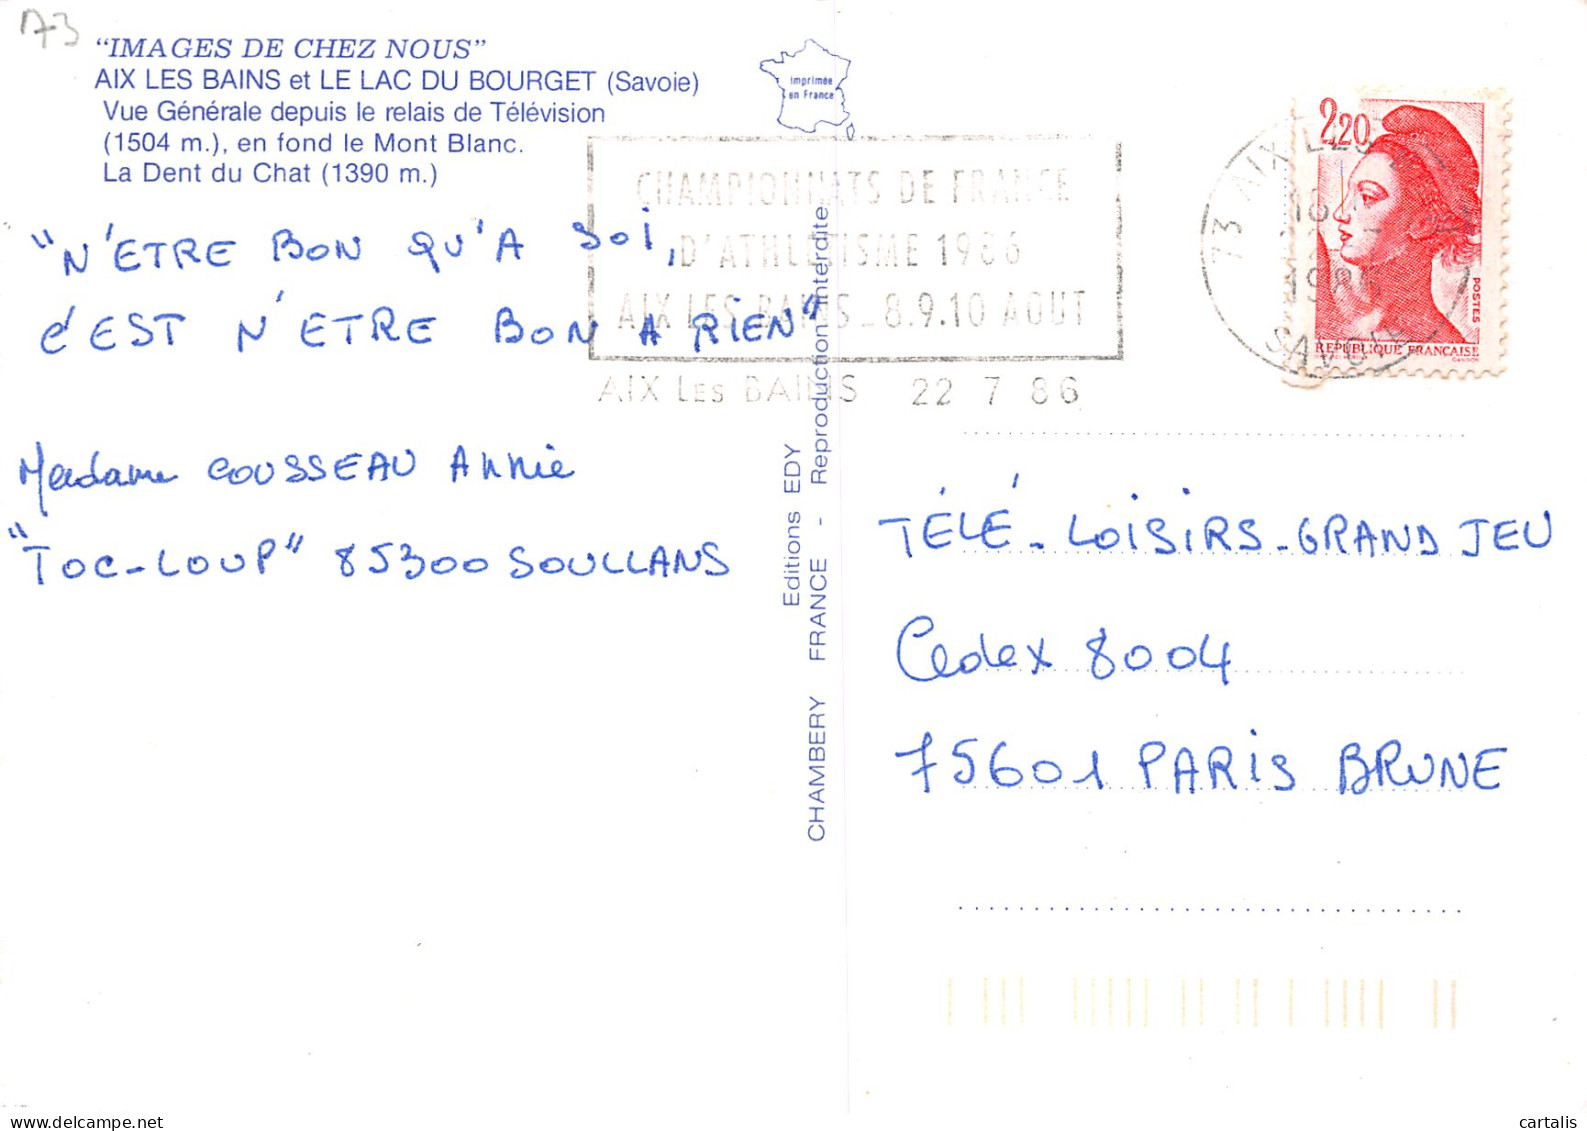 A73
"IMAGES DE CHEZ NOUS"
AIX LES BAINS et LE LAC DU BOURGET (Savoie)
Vue Générale depuis le relais de Télévision
(1504 m.), en fond le Mont Blanc.
La Dent du Chat (1390 m.)
imprimée
en France
CHAMPIONNATS DE FRANCE
D'ATHLETISME 1986
AIX LES BAINS - 8.9.10 AOUT
AIX LES BAINS 22 7 86
2,20
POSTES
REPUBLIQUE FRANCAISE
73 AIX LES
18
1986
SAVOIE
"N'ETRE BON QU'A SOI,
C'EST N'ETRE BON A RIEN"
Madame COUSSEAU Annie
"TOC-LOUP" 85300 SOULLANS
Editions EDY
CHAMBERY FRANCE - Reproduction interdite
TÉLÉ-LOISIRS-GRAND JEU
Cedex 8004
75601 PARIS BRUNE
cartalis
www.delcampe.net